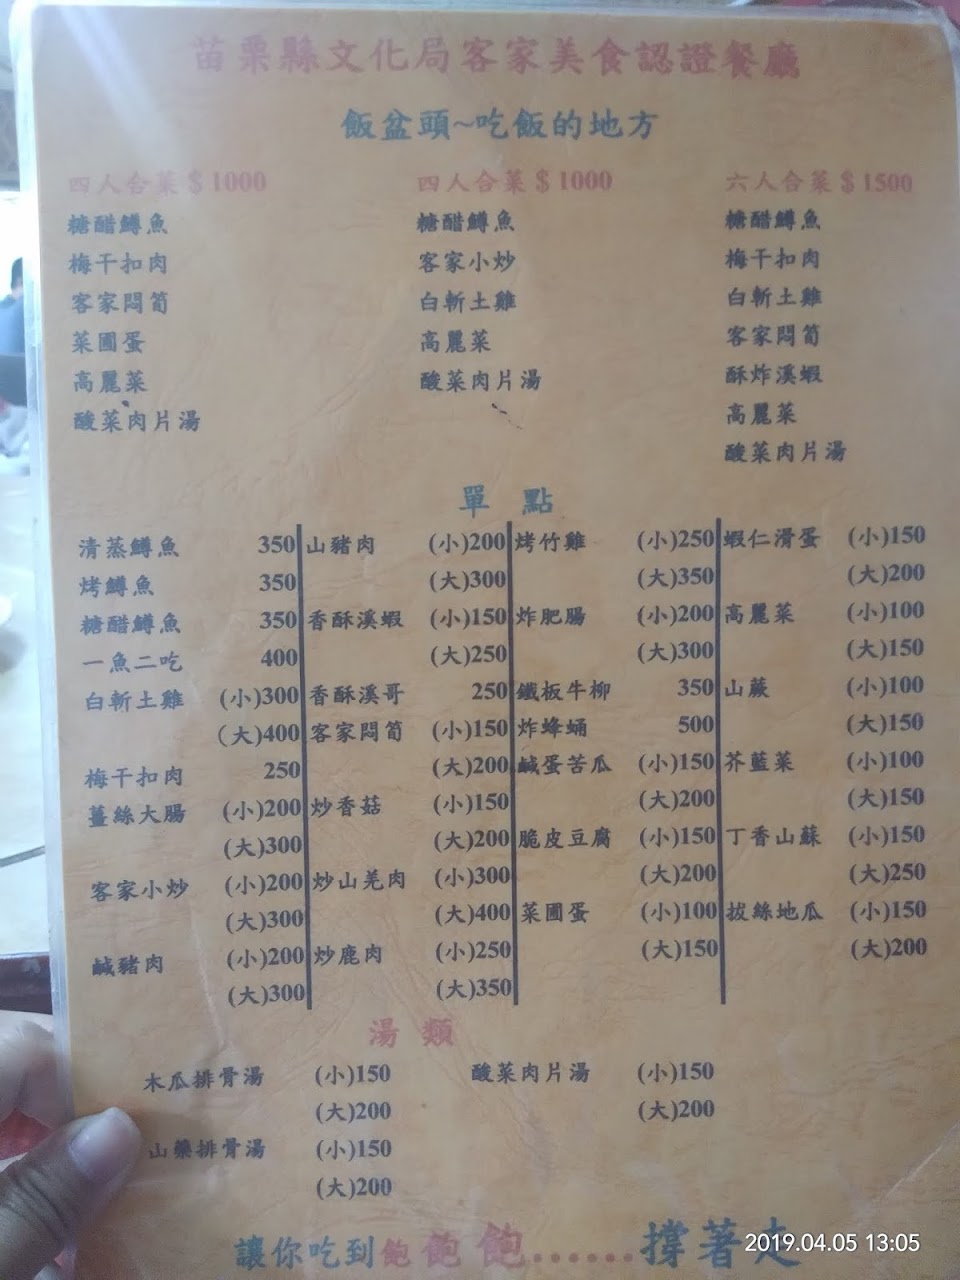 苗栗縣文化局客家美食認證餐廳
飯盆頭~吃飯的地方
四人合菜$1000
糖醋鱒魚
梅干扣肉
客家悶筍
菜圃蛋
高麗菜
酸菜肉片湯
四人合菜$1000
糖醋鱒魚
客家小炒
白斬土雞
高麗菜
酸菜肉片湯
六人合菜$1500
糖醋鱒魚
梅干扣肉
白斬土雞
客家悶筍
酥炸溪蝦
高麗菜
酸菜肉片湯
單 點
清蒸鱒魚 350
烤鱒魚 350
糖醋鱒魚 350
一魚二吃 400
白斬土雞 (小)300
(大)400
梅干扣肉 250
薑絲大腸 (小)200
(大)300
客家小炒 (小)200
(大)300
鹹豬肉 (小)200
(大)300
山豬肉 (小)200
(大)300
香酥溪蝦 (小)150
(大)250
香酥溪哥 250
客家悶筍 (小)150
(大)200
炒香菇 (小)150
(大)200
炒山羌肉 (小)300
(大)400
炒鹿肉 (小)250
(大)350
烤竹雞 (小)250
(大)350
炸肥腸 (小)200
(大)300
鐵板牛柳 350
炸蜂蛹 500
鹹蛋苦瓜 (小)150
(大)200
脆皮豆腐 (小)150
(大)200
菜圃蛋 (小)100
(大)150
蝦仁滑蛋 (小)150
(大)200
高麗菜 (小)100
(大)150
山蕨 (小)100
(大)150
芥藍菜 (小)100
(大)150
丁香山蘇 (小)150
(大)250
拔絲地瓜 (小)150
(大)200
湯 類
木瓜排骨湯 (小)150
(大)200
山藥排骨湯 (小)150
(大)200
酸菜肉片湯 (小)150
(大)200
讓你吃到飽飽飽......撐著走
2019.04.05 13:05